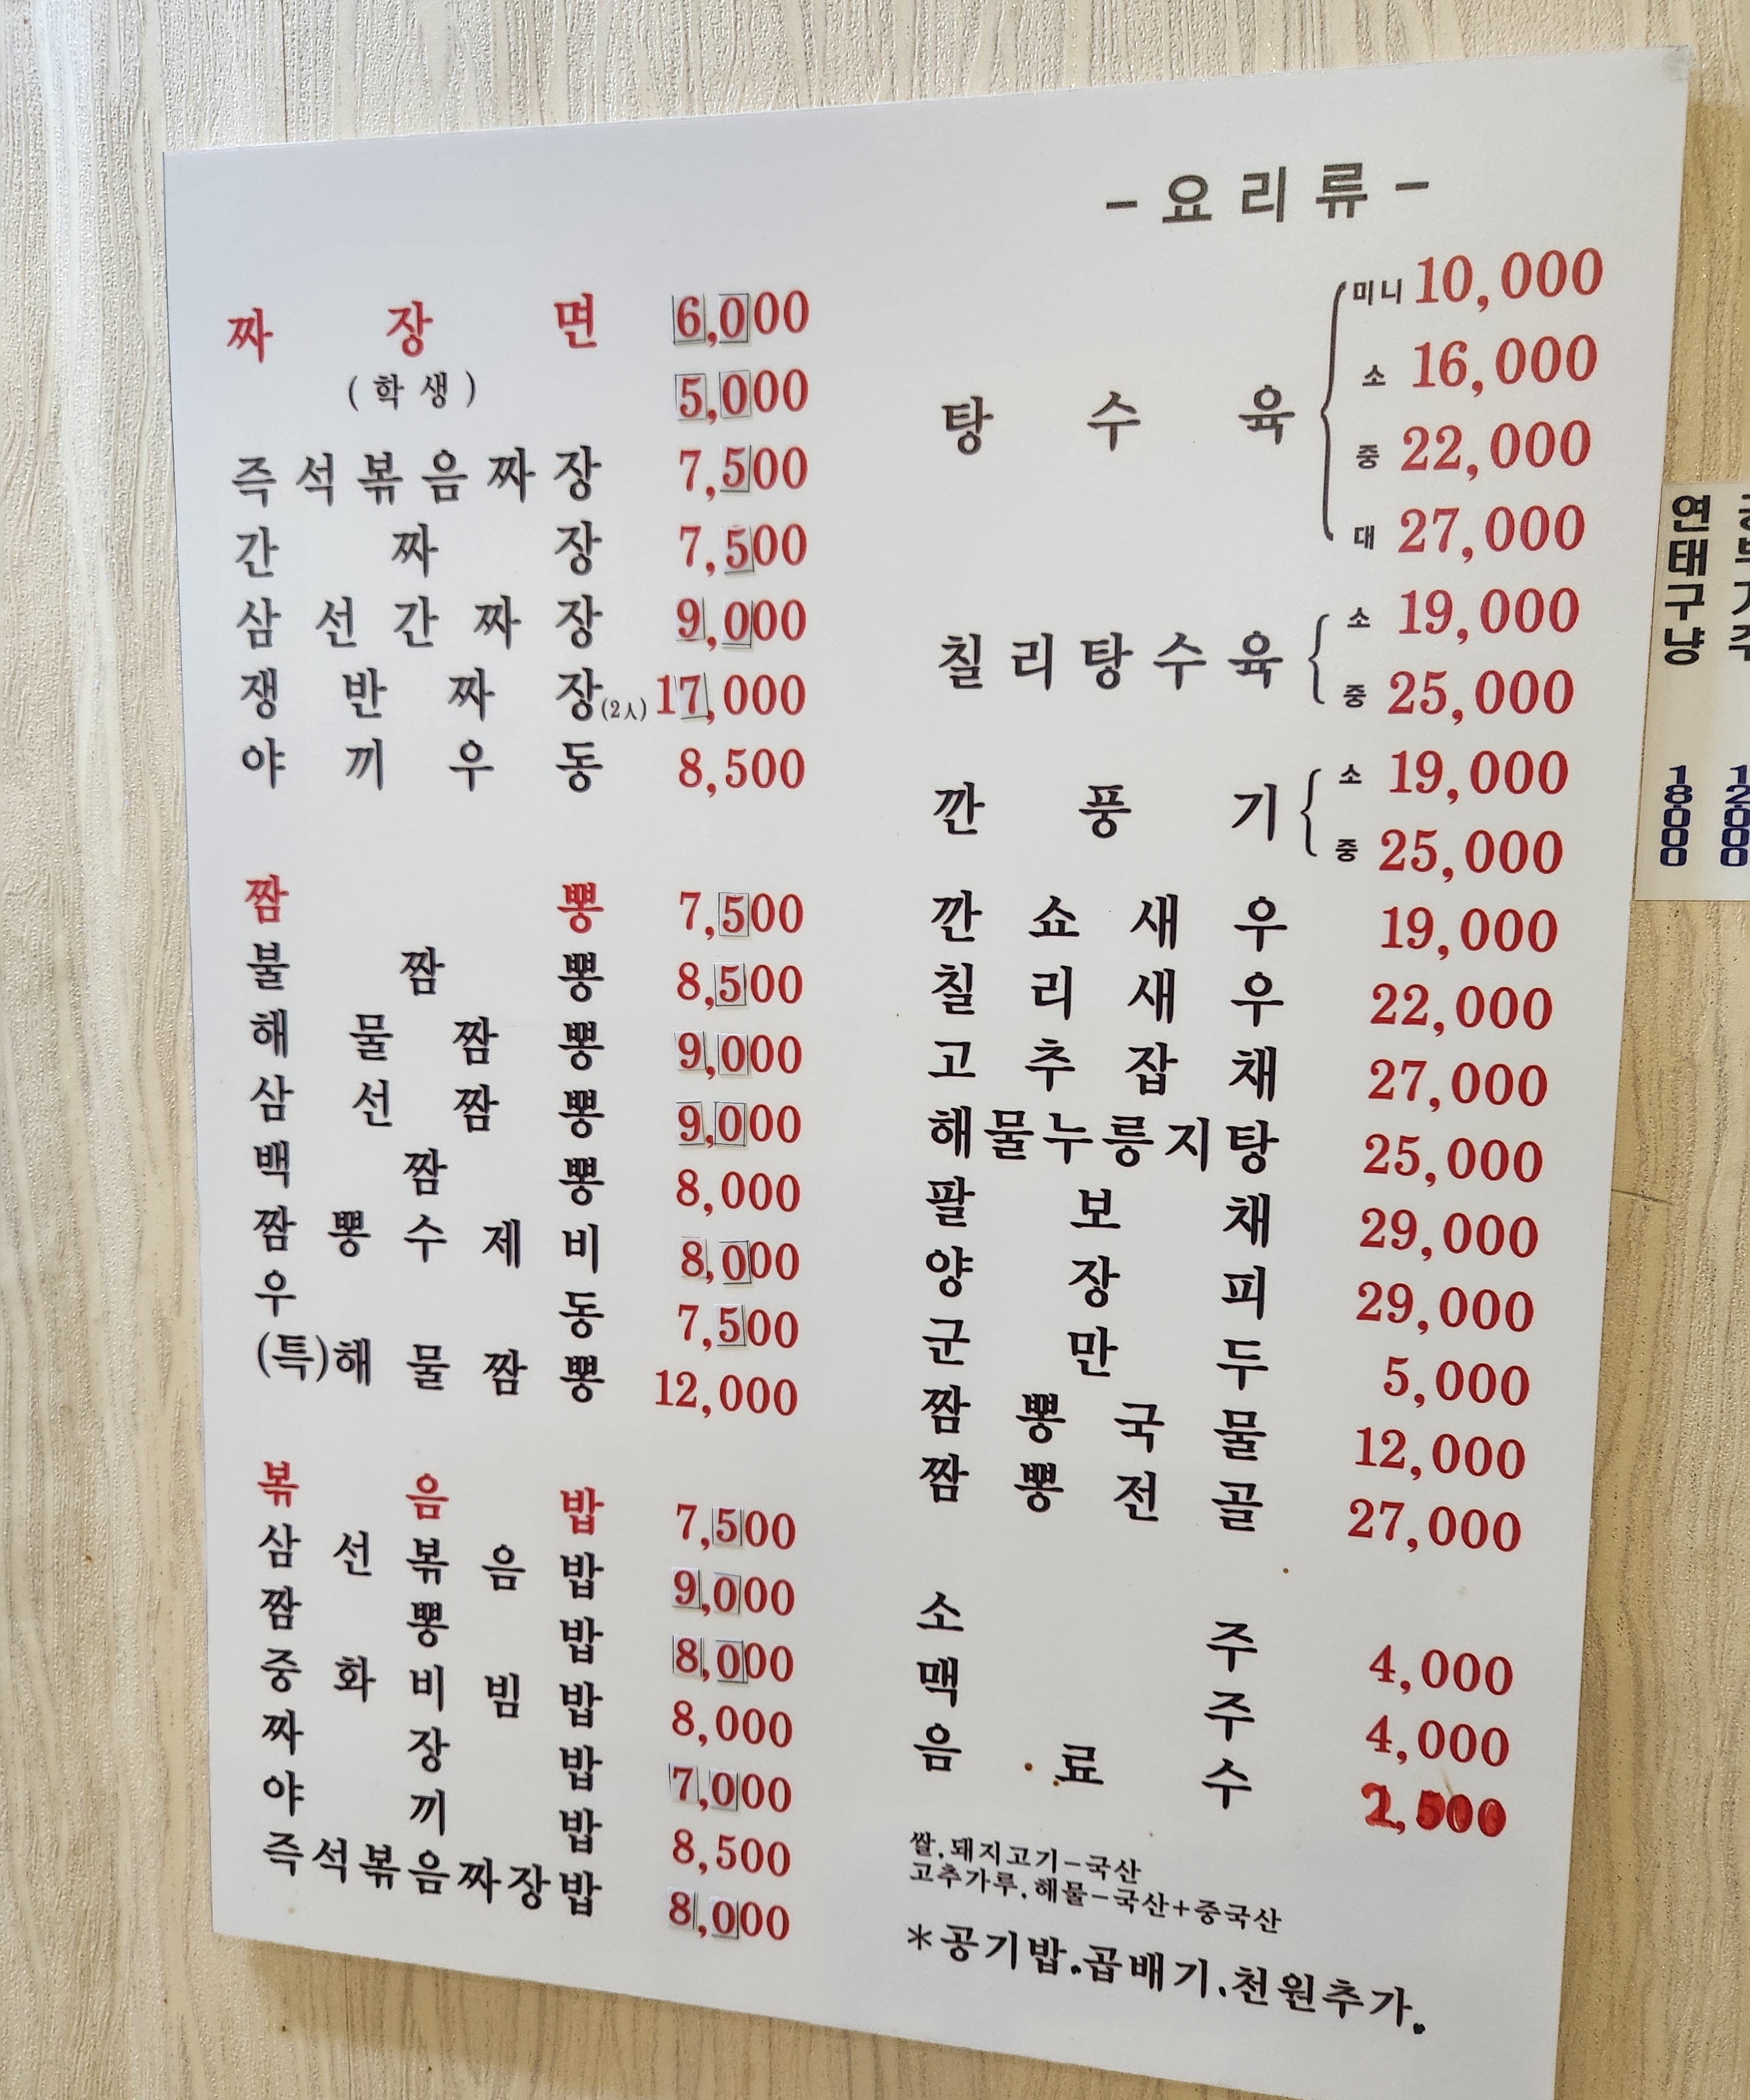 짜장면 6,000
(학생) 5,000
즉석볶음짜장 7,500
간짜장 7,500
삼선간짜장 9,000
쟁반짜장(2人) 17,000
야끼우동 8,500
짬뽕 7,500
불짬뽕 8,500
해물짬뽕 9,000
삼선짬뽕 9,000
백짬뽕 8,000
짬뽕수제비 8,000
우동 7,500
(특)해물짬뽕 12,000
볶음밥 7,500
삼선볶음밥 9,000
짬뽕밥 8,000
중화비빔밥 8,000
짜장밥 7,000
야끼밥 8,500
즉석볶음짜장밥 8,000
-요리류-
탕수육
미니 10,000
소 16,000
중 22,000
대 27,000
칠리탕수육
소 19,000
중 25,000
깐풍기
소 19,000
중 25,000
깐쇼새우 19,000
칠리새우 22,000
고추잡채 27,000
해물누룽지탕 25,000
팔보채 29,000
양장피 29,000
군만두 5,000
짬뽕국물 12,000
짬뽕전골 27,000
소주 4,000
맥주 4,000
음료수 2,500
쌀,돼지고기-국산
고추가루,해물-국산+중국산
*공기밥.곱배기.천원추가.
연태구냥 18000